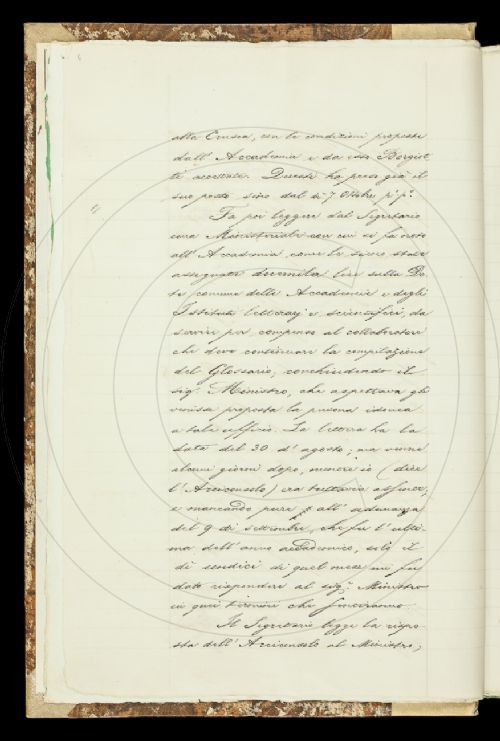 alla Crusca, con le condizioni proposte
dall' Accademia e da esso Borgiot-
ti accettate. Questi ha preso già il
suo posto sino dal dì 7 Ottobre p.º p.º
Fa poi leggere dal Segretario
una Ministeriale con cui si fa noto
all' Accademia come le sieno state
assegnate duemila lire sulla Do-
te comune delle Accademie e degli
Istituti letterarj e scientifici, da
servire per compenso al collaboratore
che deve continuare la compilazione
del Glossario, conchiudendo il
sig.r Ministro, che aspettava gli
venisse proposta la persona idonea
a tale ufficio. La lettera ha la
data del 30 d' agosto, ma venne
alcuni giorni dopo, mentre io (dice
l' Arciconsolo) era tuttavia assente,
e mancando pure all' adunanza
del 9 di settembre, che fu l' ulti-
ma dell' anno accademico, solo il
dì sendici di quel mese mi fu
dato rispondere al sig.r Ministro
in quei termini che sentiranno.
Il Segretario legge la rispo-
sta dell' Arciconsolo al Ministro,